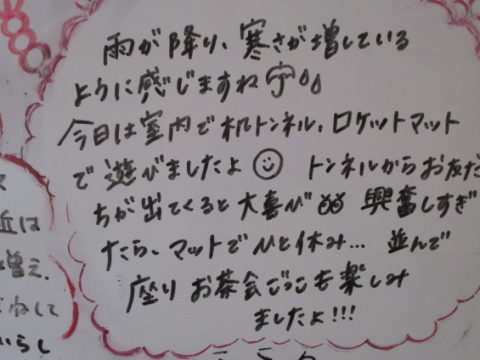 雨が降り、寒さが増している
ように感じますね
今日は室内で机トンネル、ロケットマット
で遊びましたよ トンネルからお友だ
ちが出てくると大喜び 興奮しすぎ
たら、マットでひと休み… 並んで
座りお茶会ごっこも楽しみ
ましたよ!!!
近は
増え、
して
いらし